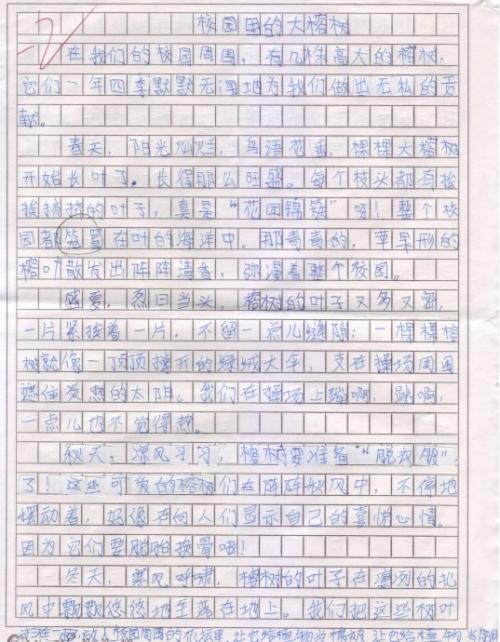 校园里的大榕树
在我们的校园周围，有几株高大的榕树，
它们一年四季默默无闻地为我们做出无私的贡
献。
春天，阳光灿烂，鸟语花香，棵棵大榕树
开始长叶了。长得那么旺盛。每个枝头都有挨
挨挤挤的叶子，真是“花团锦簇”呀！整个校
园都笼罩在叶的海洋中。那青青的，草早形的
榕叶散发出阵阵清香，弥漫着整个校园。
盛夏，烈日当头，榕树的叶子又多又密，
一片紧挨着一片，不留一点儿缝隙；一棵棵榕
树就像一顶顶撑开的绿绒大伞，支在操场周围
遮住炎热的太阳。我们在操场上蹦啊，跳啊，
一点儿也不觉得热。
秋天，凉风习习，榕树要准备“脱衣服”
了！这些可爱的榕树们在阵阵秋风中，不停地
摆动着，好像在向人们显示自己的喜悦心情。
因为它们要脱胎换骨啦！
冬天，寒风呼啸，榕树的叶子在凛冽的北
风中飘飘悠悠地坠落在地上。我们把这些树叶